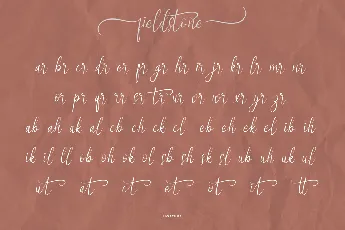 fieldstone
ar br cr dr er fr gr hr ir jr kr lr mr nr
or pr qr rr sr tr ur vr wr xr yr zr
ab ah ak al cb ch ck cl eb eh ek el ib ih
ik il ll ob oh ok ol sb sh sk sl ub uh uk ul
ut at it et ot st tt